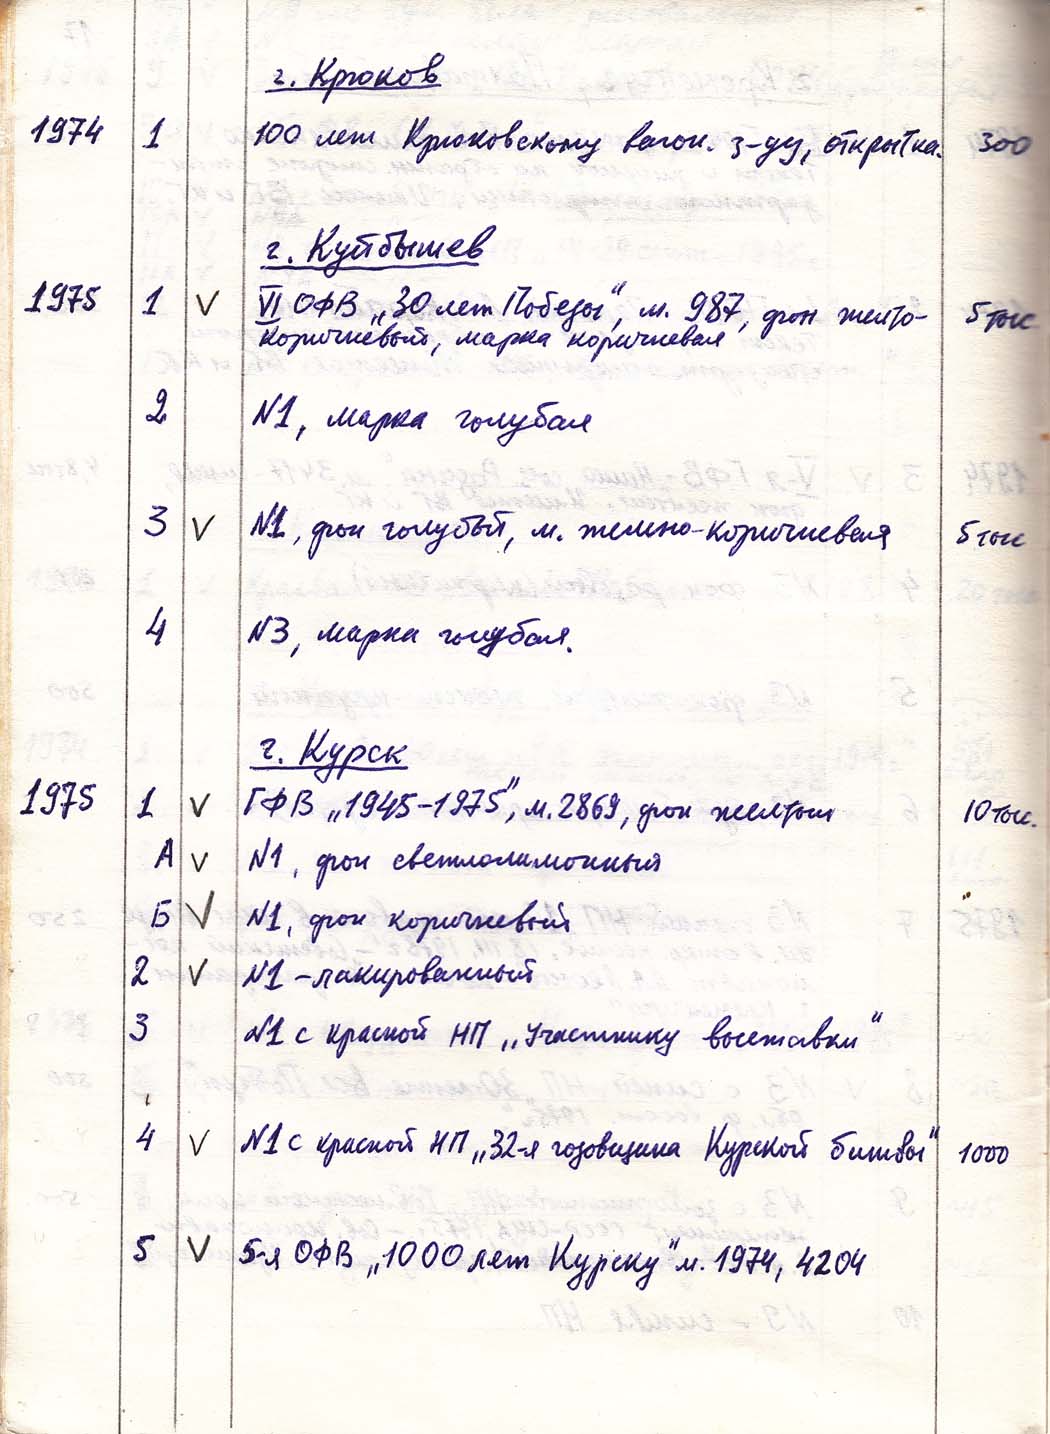 г. Крюков
1974 1 100 лет Крюковскому вагон. з-ду, открытка. 300
г. Куйбышев
1975 1 V VI ОФВ „30 лет Победы", м. 987, фон желто- 5 тыс
коричневый, марка коричневая
2 N1, марка голубая
3 V N1, фон голубый, м. желто-коричневая 5 тыс
4 N3, марка голубая.
г. Курск
1975 1 V ГФВ „1945-1975", м. 2869, фон желтый 10 тыс.
А V N1, фон светлолимонный
Б V N1, фон коричневый
2 V N1 - лакированный
3 N1 с красной НП „Участнику выставки"
4 V N1 с красной НП „32-я годовщина Курской битвы" 1000
5 V 5-я ОФВ „1000 лет Курску" м. 1974, 4204